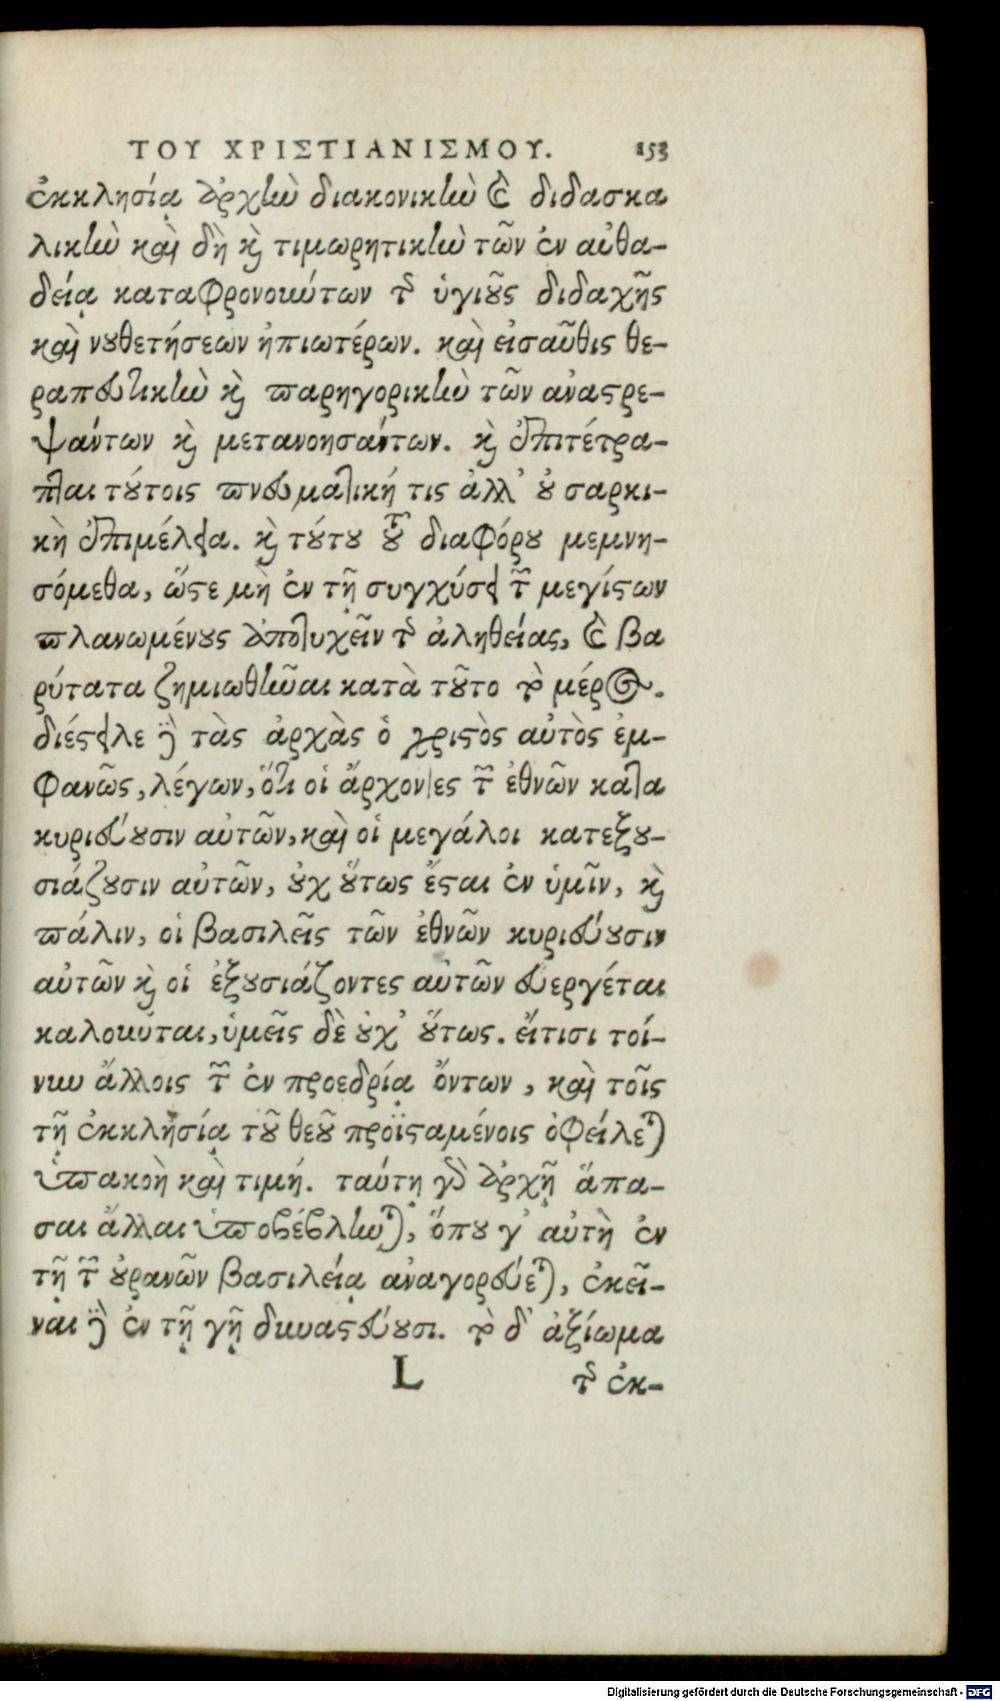 ΤΟΥ ΧΡΙΣΤΙΑΝΙΣΜΟΥ. 153
ἐκκλησίᾳ ἀρχὴν διακονικὴν καὶ διδασκα
λικὴν καὶ δὴ καὶ τιμωρητικὴν τῶν ἐν αὐθα-
δείᾳ καταφρονούντων τῆς ὑγιοῦς διδαχῆς
καὶ νουθετήσεων ἠπιωτέρων. καὶ εἰσαῦθις θε-
ραπευτικὴν καὶ παρηγορικὴν τῶν ἀναστρε-
ψάντων καὶ μετανοησάντων. καὶ ἐπιτέτρα-
πται τούτοις πνευματική τις ἀλλ' οὐ σαρκι-
κὴ ἐπιμέλεια. καὶ τούτου τοῦ διαφόρου μεμνη-
σόμεθα, ὥστε μὴ ἐν τῇ συγχύσει τῶν μεγίστων
πλανωμένους ἀποτυχεῖν τῆς ἀληθείας, καὶ βα
ρύτατα ζημιωθῆναι κατὰ τοῦτο τὸ μέρος.
διέστειλε γὰρ τὰς ἀρχὰς ὁ χριστὸς αὐτὸς ἐμ-
φανῶς, λέγων, ὅτι οἱ ἄρχοντες τῶν ἐθνῶν κατα
κυριεύουσιν αὐτῶν, καὶ οἱ μεγάλοι κατεξου-
σιάζουσιν αὐτῶν, οὐχ οὕτως ἔσται ἐν ὑμῖν, καὶ
πάλιν, οἱ βασιλεῖς τῶν ἐθνῶν κυριεύουσιν
αὐτῶν καὶ οἱ ἐξουσιάζοντες αὐτῶν εὐεργέται
καλοῦνται, ὑμεῖς δὲ οὐχ' οὕτως. εἴτισι τοί-
νυν ἄλλοις τῶν ἐν προεδρίᾳ ὄντων, καὶ τοῖς
τῇ ἐκκλησίᾳ τοῦ θεοῦ προϊσταμένοις ὀφείλεται
ὑπακοὴ καὶ τιμή. ταύτῃ γὰρ ἀρχῇ ἅπα-
σαι ἄλλαι ὑποβέβληνται, ὅπου γ' αὐτὴ ἐν
τῇ τῶν οὐρανῶν βασιλείᾳ ἀναγορεύεται, ἐκεῖ-
ναι γὰρ ἐν τῇ γῇ δυναστεύουσι. τὸ δ' ἀξίωμα
L τῆς ἐκ-
Digitalisierung gefördert durch die Deutsche Forschungsgemeinschaft - DFG